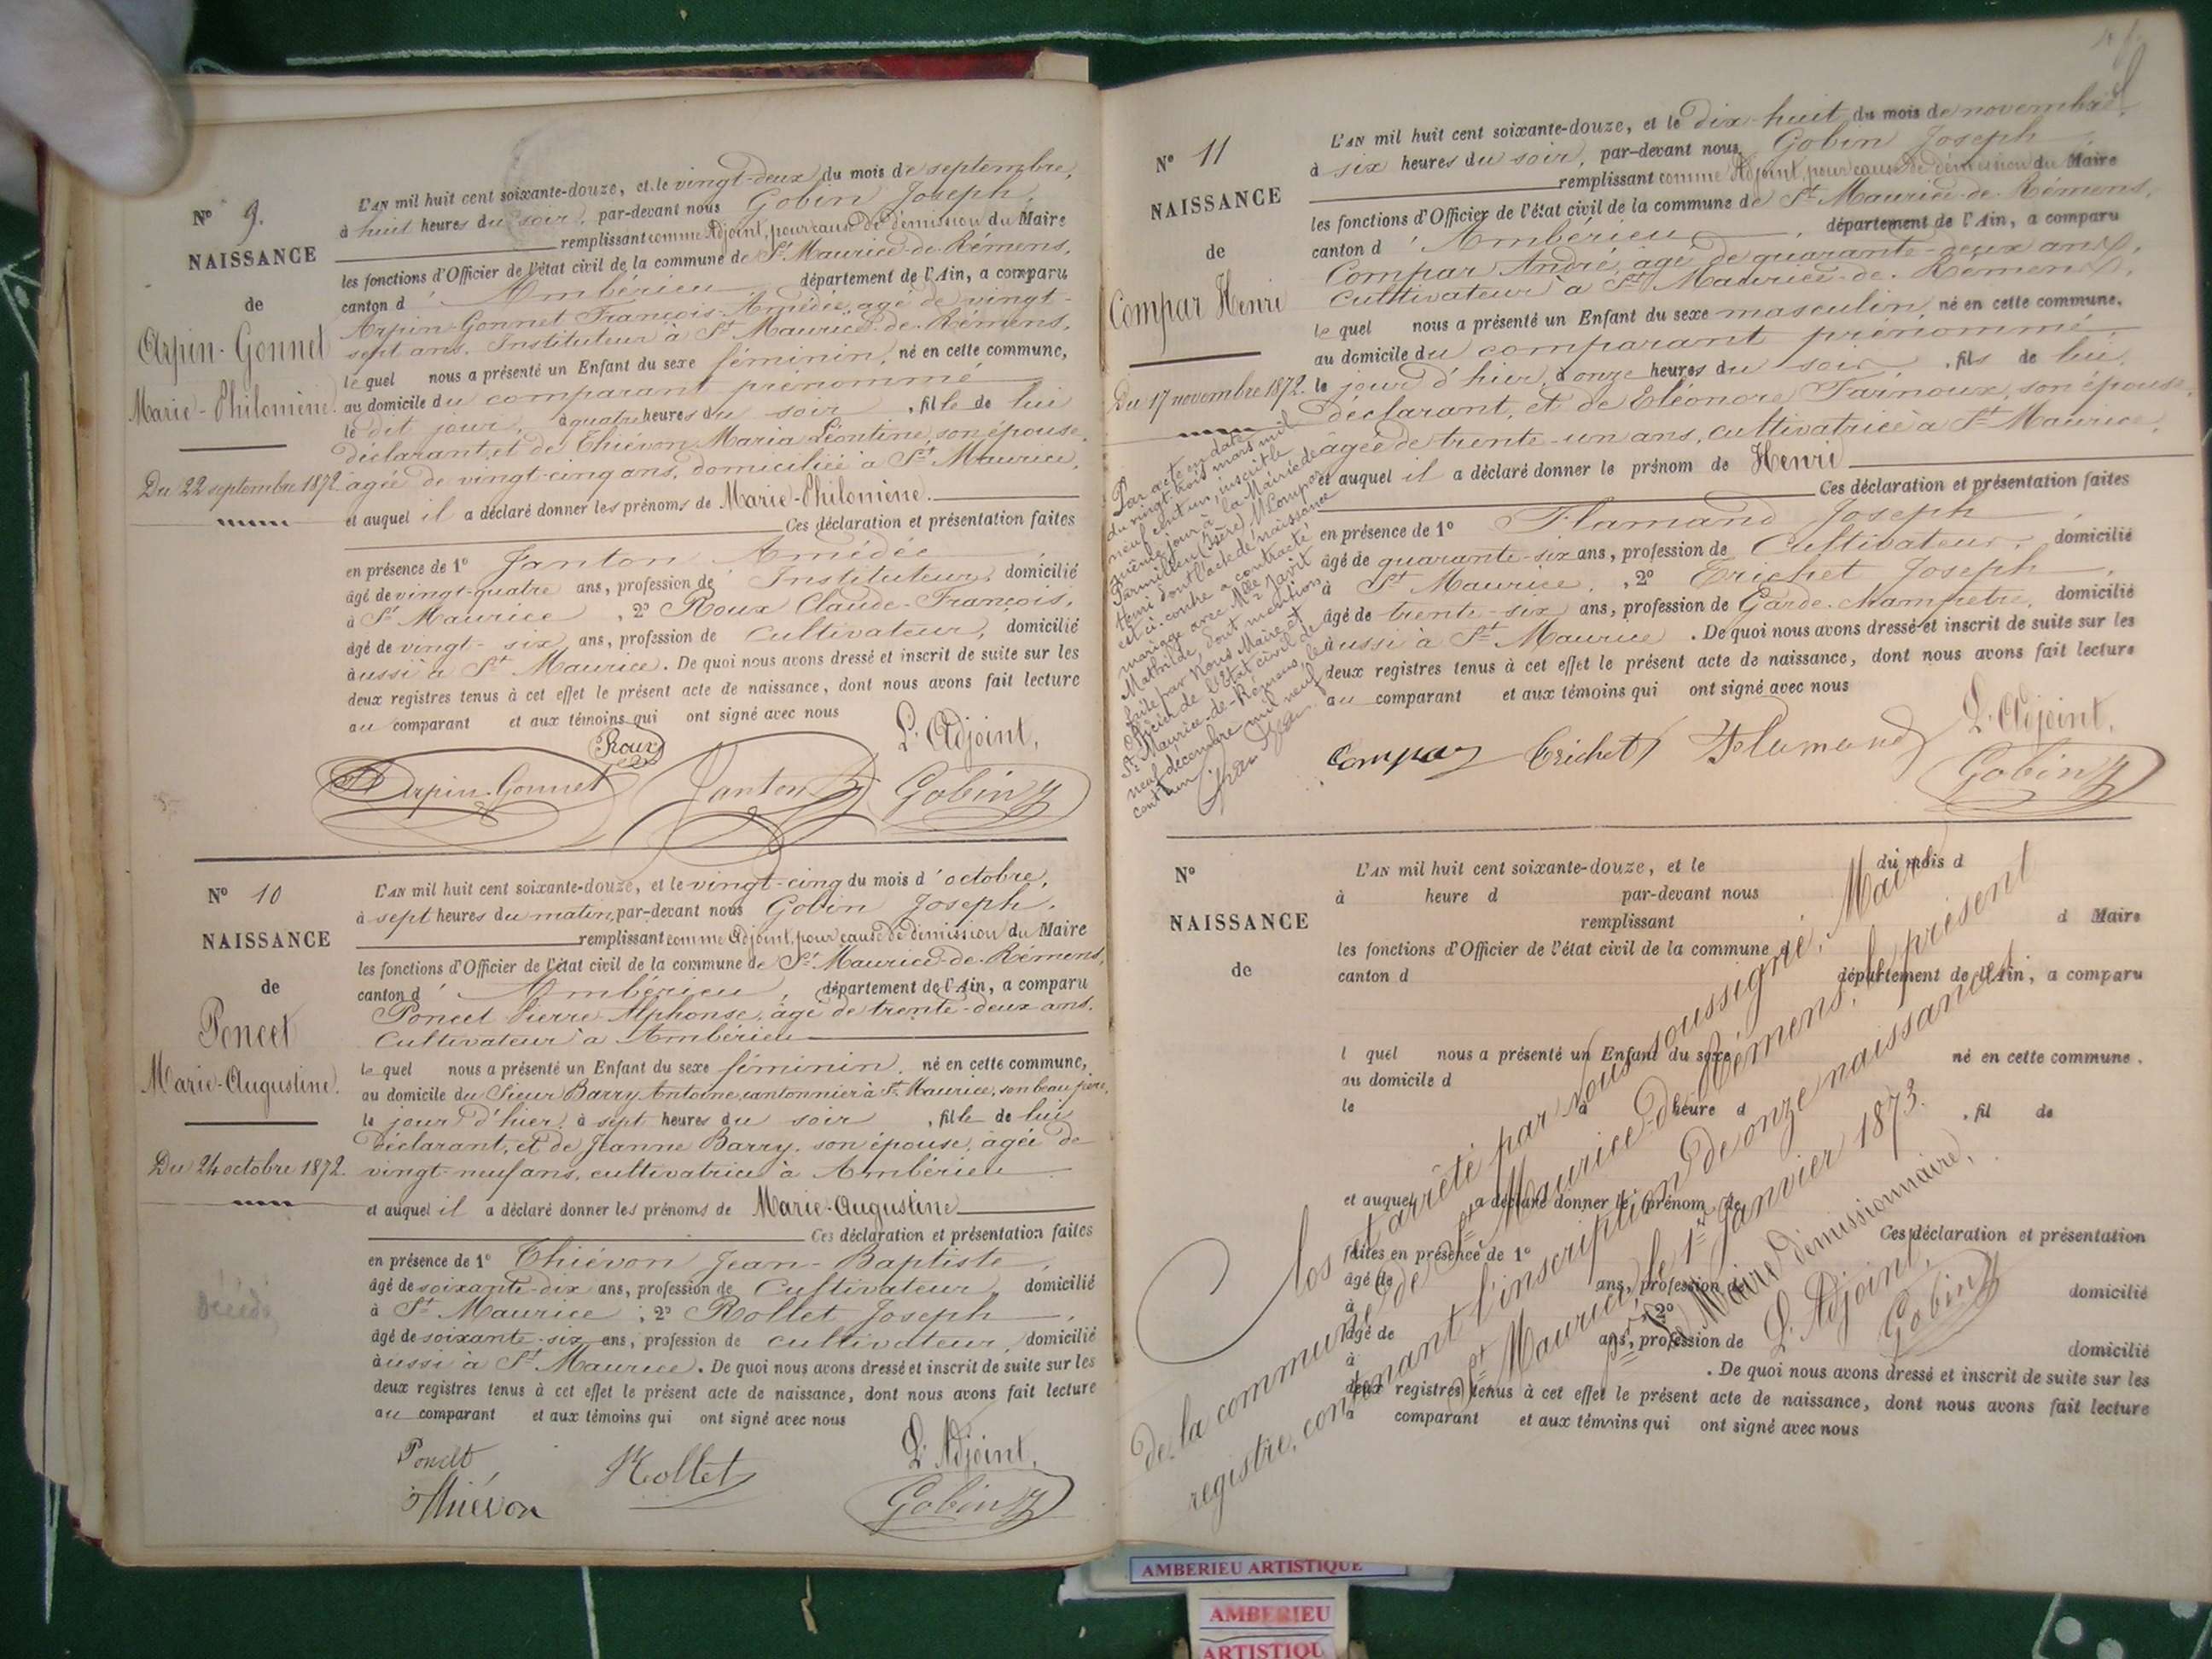 N° 9.
NAISSANCE
de
Arpin-Gonnet
Marie-Philomène.
Du 22 septembre 1872
L'AN mil huit cent soixante-douze, et le vingt-deux du mois de septembre,
à huit heures du soir, par-devant nous Gobin Joseph,
remplissant comme Adjoint, pour cause de démission du Maire
les fonctions d'Officier de l'état civil de la commune de St Maurice-de-Rémens,
canton d'Ambérieu département de l'Ain, a comparu
Arpin-Gonnet François-Amédée, agé de vingt-
sept ans, Instituteur à St Maurice-de-Rémens,
lequel nous a présenté un Enfant du sexe féminin, né en cette commune,
au domicile du comparant prénommé
le dit jour, à quatre heures du soir, fille de lui
déclarant, et de Thiévon Maria Léontine, son épouse,
âgée de vingt-cinq ans, domiciliée à St Maurice,
et auquel il a déclaré donner les prénoms de Marie-Philomène.
Ces déclaration et présentation faites
en présence de 1° Janton Amédée
âgé de vingt-quatre ans, profession de Instituteur, domicilié
à St Maurice, 2° Roux Claude-François,
âgé de vingt-six ans, profession de Cultivateur, domicilié
aussi à St Maurice. De quoi nous avons dressé et inscrit de suite sur les
deux registres tenus à cet effet le présent acte de naissance, dont nous avons fait lecture
au comparant et aux témoins qui ont signé avec nous
Roux
L'Adjoint,
Arpin-Gonnet Janton Gobin
N° 10
NAISSANCE
de
Poncet
Marie-Augustine.
Du 24 octobre 1872.
L'AN mil huit cent soixante-douze, et le vingt-cinq du mois d'octobre,
à sept heures du matin, par-devant nous Gobin Joseph,
remplissant comme Adjoint, pour cause de démission du Maire
les fonctions d'Officier de l'état civil de la commune de St Maurice-de-Rémens,
canton d'Ambérieu, département de l'Ain, a comparu
Poncet Pierre-Alphonse, âgé de trente-deux ans,
Cultivateur à Ambérieu
lequel nous a présenté un Enfant du sexe féminin, né en cette commune,
au domicile du Sieur Barry Antoine, cantonnier à St Maurice, son beau père,
le jour d'hier, à sept heures du soir, fille de lui
déclarant, et de Jeanne Barry, son épouse, âgée de
vingt-neuf ans, cultivatrice à Ambérieu
et auquel il a déclaré donner les prénoms de Marie-Augustine
Ces déclaration et présentation faites
en présence de 1° Thiévon Jean-Baptiste,
âgé de soixante-dix ans, profession de Cultivateur, domicilié
à St Maurice; 2° Rollet Joseph,
âgé de soixante-six ans, profession de cultivateur, domicilié
aussi à St Maurice. De quoi nous avons dressé et inscrit de suite sur les
deux registres tenus à cet effet le présent acte de naissance, dont nous avons fait lecture
au comparant et aux témoins qui ont signé avec nous
décédé
Poncet Rollet L'Adjoint,
Thiévon Gobin
N° 11
NAISSANCE
de
Compar Henri
Du 17 novembre 1872.
L'AN mil huit cent soixante-douze, et le dix-huit du mois de novembre
à six heures du soir, par-devant nous Gobin Joseph
remplissant comme Adjoint, pour cause de démission du Maire
les fonctions d'Officier de l'état civil de la commune de St Maurice-de-Rémens,
canton d'Ambérieu, département de l'Ain, a comparu
Compar André, agé de quarante-deux ans,
Cultivateur à St Maurice-de-Rémens,
lequel nous a présenté un Enfant du sexe masculin, né en cette commune,
au domicile du comparant prénommé,
le jour d'hier, à onze heures du soir, fils de lui
déclarant, et de Eléonore Farinoux, son épouse,
âgée de trente-un ans, cultivatrice à St Maurice,
et auquel il a déclaré donner le prénom de Henri
Ces déclaration et présentation faites
en présence de 1° Flamand Joseph
âgé de quarante-six ans, profession de Cultivateur, domicilié
à St Maurice, 2° Trichet Joseph,
âgé de trente-six ans, profession de Garde-champêtre, domicilié
aussi à St Maurice. De quoi nous avons dressé et inscrit de suite sur les
deux registres tenus à cet effet le présent acte de naissance, dont nous avons fait lecture
au comparant et aux témoins qui ont signé avec nous
Par acte en date
du vingt-trois mars mil
neuf cent un, inscrit le
même jour à la Mairie de
Parmilieu (Isère), M. Compar
Henri dont l'acte de naissance
est ci-contre a contracté
mariage avec Mlle Javit
Mathilde, dont mention
faite par Nous Maire et
Officier de l'État civil de
St Maurice-de-Rémens, le
neuf décembre mil neuf
cent un
Compar Trichet Flamand L'Adjoint,
Gobin
N°
NAISSANCE
de
L'AN mil huit cent soixante-douze, et le du mois d
à heure d par-devant nous
remplissant d Maire
les fonctions d'Officier de l'état civil de la commune d
canton d département de l'Ain, a comparu
l quel nous a présenté un Enfant du sexe né en cette commune.
au domicile d
le à heure d , fil de
et auquel a déclaré donner le prénom de
Ces déclaration et présentation
faites en présence de 1°
âgé de ans, profession de domicilié
à , 2°
âgé de ans, profession de domicilié
à . De quoi nous avons dressé et inscrit de suite sur les
deux registres tenus à cet effet le présent acte de naissance, dont nous avons fait lecture
a comparant et aux témoins qui ont signé avec nous
Clos et arrêté par Nous soussigné, Maire
de la commune de St Maurice-de-Rémens, le présent
registre, contenant l'inscription de onze naissances.
St Maurice, le 1er janvier 1873.
pr le Maire démissionnaire,
L'Adjoint,
Gobin
AMBERIEU ARTISTIQUE
AMBERIEU
ARTISTIQU